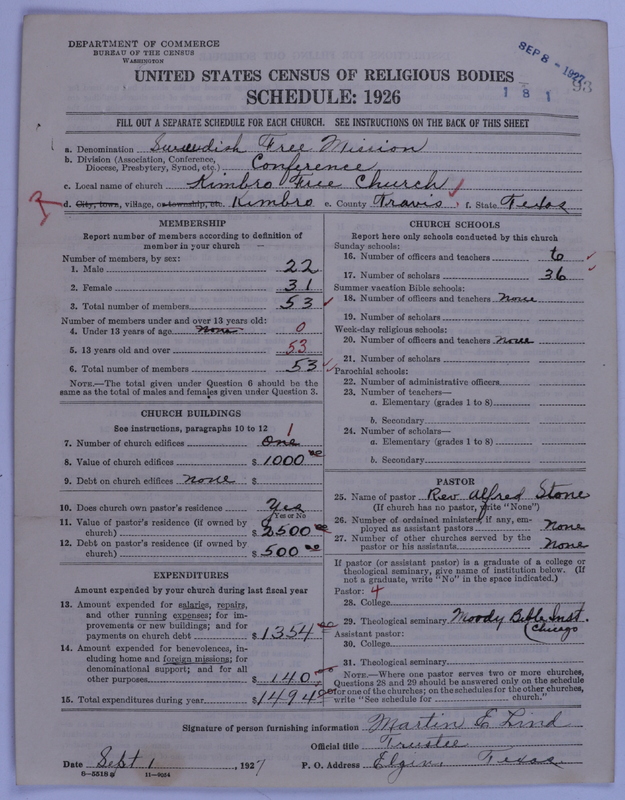 DEPARTMENT OF COMMERCE
BUREAU OF THE CENSUS
WASHINGTON
SEP 8 - 1927
93
1 8 1
UNITED STATES CENSUS OF RELIGIOUS BODIES
SCHEDULE: 1926
FILL OUT A SEPARATE SCHEDULE FOR EACH CHURCH. SEE INSTRUCTIONS ON THE BACK OF THIS SHEET
a. Denomination Swedish Free Mission
b. Division (Association, Conference, Diocese, Presbytery, Synod, etc.) Conference
c. Local name of church Kimbro Free Church
d. City, town, village, or township, etc. Kimbro e. County Travis f. State Texas
MEMBERSHIP
Report number of members according to definition of
member in your church
Number of members, by sex:
1. Male 22
2. Female 31
3. Total number of members 53
Number of members under and over 13 years old:
4. Under 13 years of age none 0
5. 13 years old and over 53
6. Total number of members 53
NOTE.—The total given under Question 6 should be
same as the total of males and females given under Question 3.
CHURCH BUILDINGS
See instructions, paragraphs 10 to 12
7. Number of church edifices One 1
8. Value of church edifices $ 1000 00
9. Debt on church edifices none $
10. Does church own pastor's residence? Yes
(Yes or No)
11. Value of pastor's residence (if owned by
church) $ 2500 00
12. Debt on pastor's residence (if owned by
church) $ 500 00
EXPENDITURES
Amount expended by your church during last fiscal year
13. Amount expended for salaries, repairs,
and other running expenses; for im-
provements or new buildings; and for
payments on church debt $ 1354 00
14. Amount expended for benevolences, in-
cluding home and foreign missions; for
denominational support; and for all
other purposes $ 140 00
15. Total expenditures during year $ 1494 00
CHURCH SCHOOLS
Report here only schools conducted by this church
Sunday schools:
16. Number of officers and teachers 6
17. Number of scholars 36
Summer vacation Bible schools:
18. Number of officers and teachers none
19. Number of scholars
Week-day religious schools:
20. Number of officers and teachers none
21. Number of scholars
Parochial schools:
22. Number of administrative officers
23. Number of teachers—
a. Elementary (grades 1 to 8)
b. Secondary
24. Number of scholars—
a. Elementary (grades 1 to 8)
b. Secondary
PASTOR
25. Name of pastor Rev Alfred Stone
(If church has no pastor, write "None")
26. Number of ordained ministers, if any, em-
ployed as assistant pastors None
27. Number of other churches served by the
pastor or his assistants None
If pastor (or assistant pastor) is a graduate of a college or
theological seminary, give name of institution below. (If
not a graduate, write "No" in the space indicated.)
Pastor: 4
28. College
29. Theological seminary Moody Bible Inst.
Chicago
Assistant pastor:
30. College
31. Theological seminary
NOTE.—Where one pastor serves two or more churches,
Questions 28 and 29 should be answered only on the schedule
for one of the churches; on the schedules for the other churches,
write "See schedule for church."
Signature of person furnishing information Martin E Lind
Official title Trustee
Date Sept 1, 1927 P. O. Address Elgin, Texas
8-5518 a 11-9024